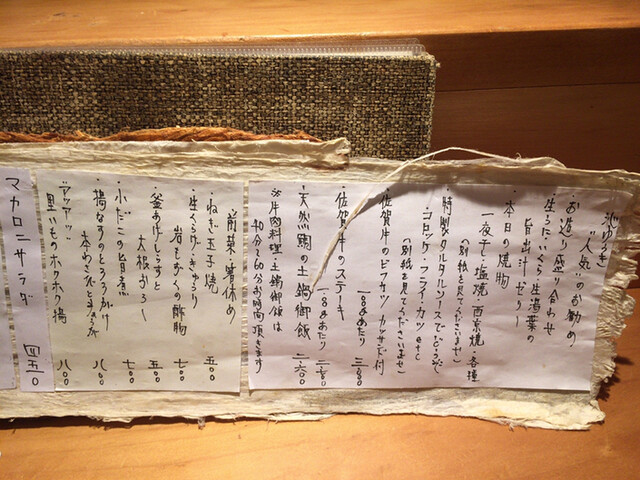 "人気"のお勧め
お造り盛り合わせ
・生うに・いくら・生湯葉の
旨出汁ゼリー
・本日の焼物 (別紙を見てくださいませ)
一夜干し・塩焼・西京焼・各種
・特製タルタルソースでどうぞ
コロッケ・フライ・カツ etc
(別紙を見てくださいませ)
・佐賀牛のビフカツ カツサンド付
100gあたり 三、
佐賀牛のステーキ
100gあたり
・天然鯛の土鍋御飯 二、六〇〇
※牛肉料理・土鍋御飯は
40分〜60分お時間頂きます
前菜・箸休め
・ねぎ玉子焼 五〇〇
・生くらげときゅうり
岩もずくの酢物 七〇〇
・釜あげしらすと
大根おろし 五〇〇
・小だこの旨煮 七〇〇
・揚なすのとろろがけ
本わさびと 八〇〇
・"アツアツ"
里いものホクホク揚 八〇〇
マカロニサラダ 四五〇